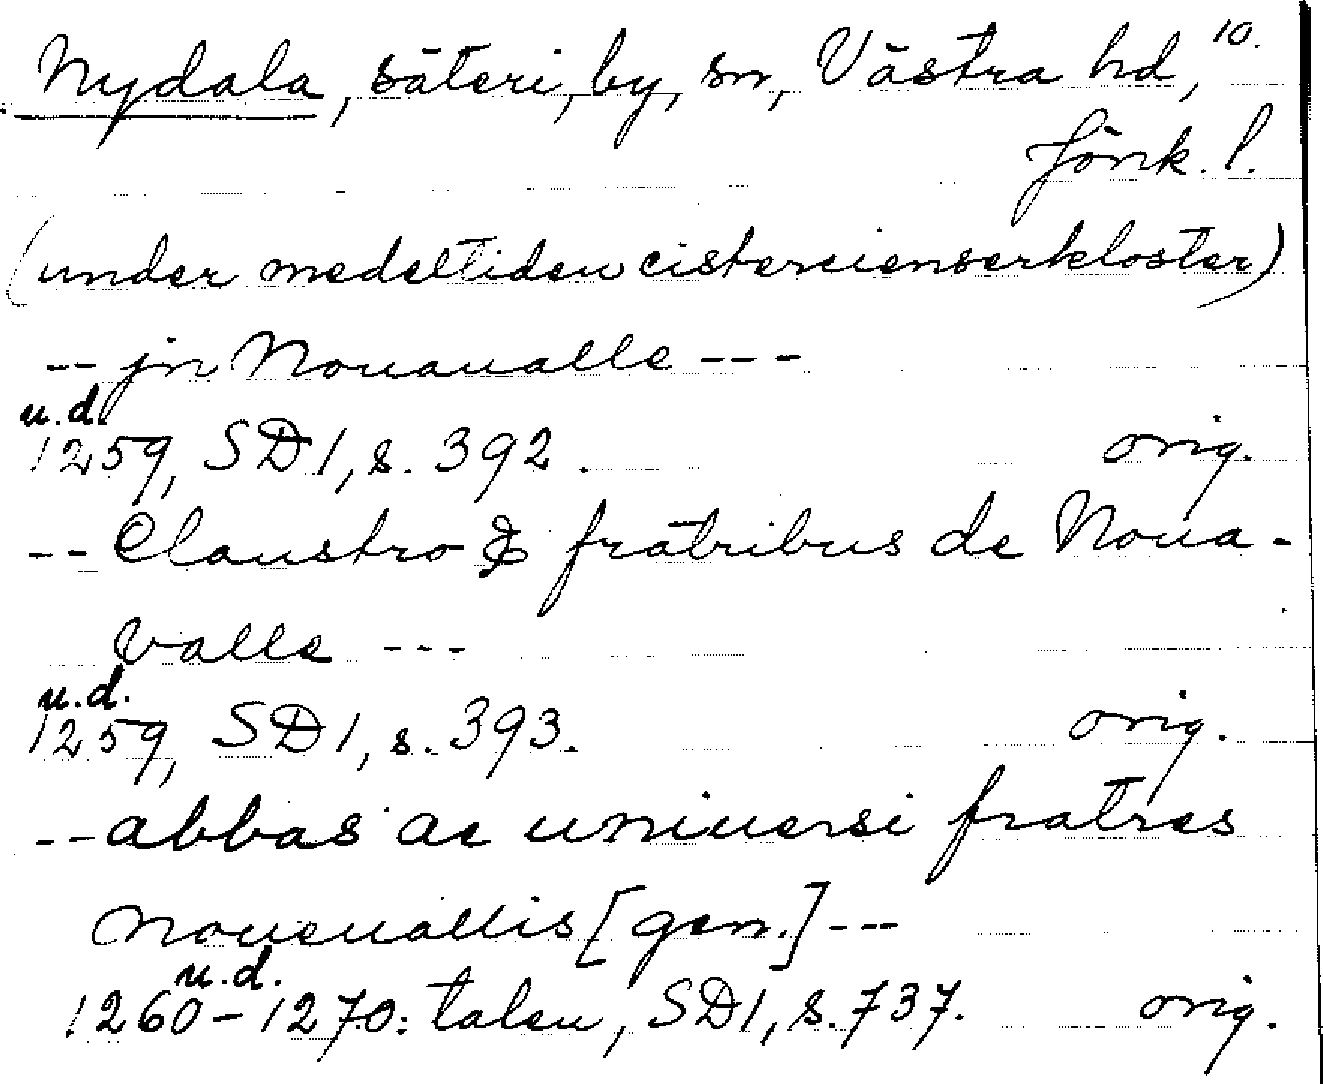 Nydala, säteri, by, sn, Västra hd, 10.
Jönk. l.
(under medeltiden cistercienserkloster)
-- jn Nouaualle ---
u.d.
1259, SD 1, s. 392. orig.
-- Claustro & fratribus de Noua-
valle ---
u.d.
1259, SD 1, s. 393. orig.
-- abbas ac uniuersi fratres
noueuallis [gen.] ---
u.d.
1260-1270: talen, SD 1, s. 737. orig.